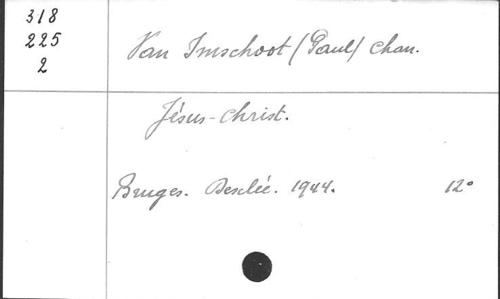 318
225
2
Van Imschoot (Paul) chan.
Jésus-Christ.
Bruges. Desclée. 1944. 12°